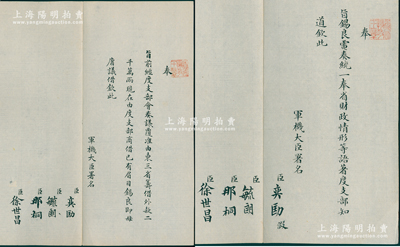 上海陽明拍賣
上海陽明拍賣
奉
旨錫良電奏統一奉省財政情形等語著度支部知
道欽此
軍機大臣署名
臣奕劻 假
臣毓朗
臣那桐
臣徐世昌
奉
旨前經度支部會奏議覆准由東三省籌借外款二
千萬兩現在由度支部商借已有眉目錫良即毋
庸議借欽此
軍機大臣署名
臣奕劻
臣毓朗
臣那桐
臣徐世昌